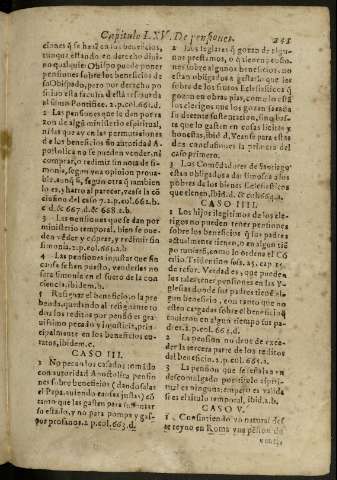 Capitulo LXV. De pensiones. 241
ciones q̃ se haze en los beneficios,
aunque estando en derecho divino
qualquier Obispo puede poner
pensiones sobre los beneficios de
su Obispado, pero por derecho po
sitiuo esta facultad está
al sumo Pontifice. 2. p. col. 661. d.
2 Las pensiones que se dan por ra
zon de algũ ministerio espiritual,
ni las que ay en las permutaciones
de los beneficios sin autoridad A-
postolica no se pueden vender, ni
comprar, o redimir sin nota de si-
monia, segun vna opinion proua-
ble. aunq̃ ñ, segun otra q̃ tambien
lo es, y harto al parecer, vease la cõ
clusion del caso 7. 2. p. col. 662. b.
c. d. & 667. d. & 668. a. b.
3 Las pensiones que se dan por
ministerio temporal, bien se pue-
den vẽder y cõprar, y redimir sin
simonia. 2. p. col. 662. b.
4 Las pensiones injustas que sin
causa se han puesto, venderlas no
sera simonia en el fuero de la con
ciencia. ibidem. b.
5 Resignar el beneficio, o la pre
benda, quedando al resignante to
dos los reditos por pensiõ es gra-
uissimo pecado y injusticia, prin-
cipalmente en los beneficios cu-
ratos, ibidem. c.
CASO III.
1 No pecan los casados tomãdo
con autoridad Apostolica pensio
nes sobre beneficios (dandoselas
el Papa, auiendo causas justas) cõ
tanto que las gasten para sustentar
su estado, y no para pompa y gas-
tos profanos. 2. p. col. 663. d.
2 Los seglares q̃ gozan de algu-
nos prestamos, o tienen pensio-
nes sobre algunos beneficios, no
estan obligados a gastar lo que les
sobre de los frutos Eclesiasticos q̃
gozan en obras pias, como lo está
los clerigos que los gozan sacada
su decente sustentacion, sino bas-
ta que lo gasten en cosas licitas y
honestas, ibid. d. Veanse para estas
dos conclusiones la primera del
caso primero.
3 Los Comẽdadores de Santiago
estan obligados a dar limosna a los
pobres de los bienes Eclesiasticos
que tienen, ibid.
CASO IIII.
1 Los hijos ilegitimos de los cle-
rigos no pueden tener pensiones
sobre los beneficios q̃ sus padres
actualmente tienen, o en algun tiẽ
po tuuieron, como lo ordena el Cõ
cilio Tridentino sess. 25. cap. 15.
de refor. Verdad es, que pueden
los tales tener pensiones en las Y-
glesias donde sus padres tiene al-
gun beneficio, con tanto que no
esten cargadas sobre el beneficio q̃
tuuieron en algun tiempo sus pa-
dres. 2. p. col. 663. d.
2 La pensión no deue de exce-
der la tercera parte de los reditos
del beneficio. 2. p. col. 663.
3 La pension que se señala en
descomulgado por titulo espiri-
tual es ninguna; empero es valida
si es al titulo temporal, ibid. a. b.
CASO V.
1 Consintiendo vn natural des
te reyno en Roma vna pẽsion de